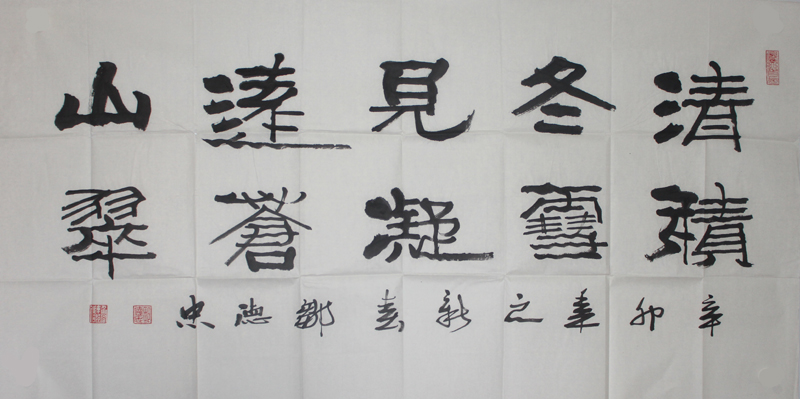 清冬見遠山
積雪凝蒼翠
辛卯年之新春鄒德忠